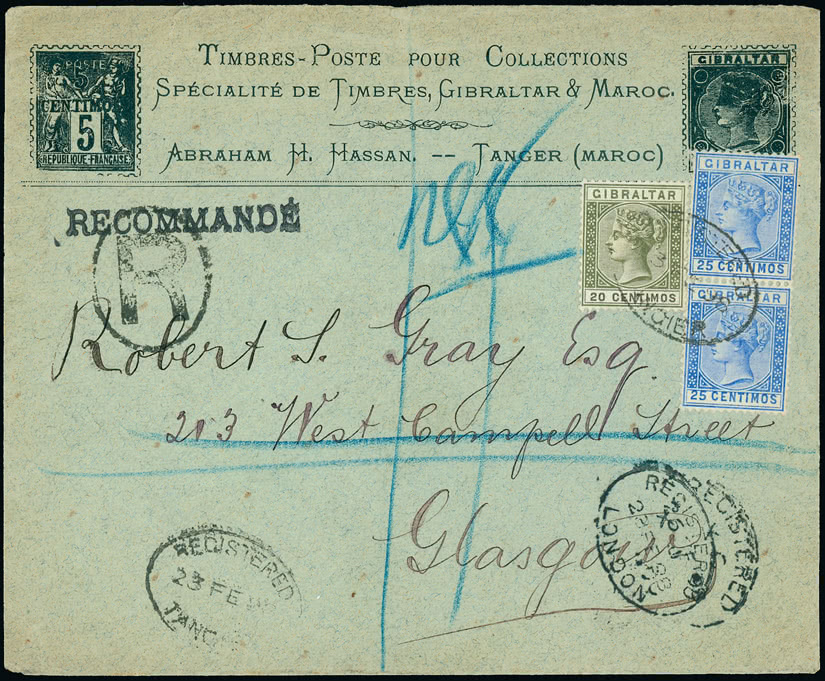 TIMBRES-POSTE POUR COLLECTIONS
SPÉCIALITÉ DE TIMBRES, GIBRALTAR & MAROC.
ABRAHAM H. HASSAN. -- TANGER (MAROC)
POSTE
5
CENTIMOS
5
REPUBLIQUE-FRANÇAISE
GIBRALTAR
RECOMMANDÉ
R
GIBRALTAR
20 CENTIMOS
GIBRALTAR
25 CENTIMOS
GIBRALTAR
25 CENTIMOS
REGISTERED
TANGIER
Robert S. Gray Esq.
213 West Campell Street
Glasgow
REGISTERED
23 FE
TANG
REGISTERED
LONDON
REGISTERED